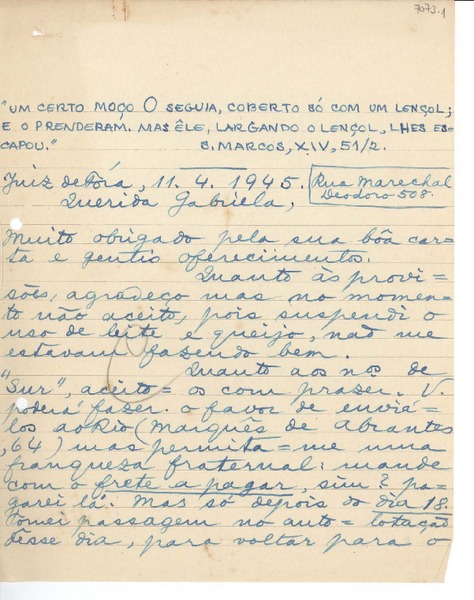 7073.1
"UM CERTO MOÇO O SEGUIA, COBERTO SÓ COM UM LENÇOL;
E O PRENDERAM. MAS ÊLE, LARGANDO O LENÇOL, LHES ES-
CAPOU." S. MARCOS, XIV, 51/2.
Juiz de Fóra, 11.4.1945. Rua Marechal
Deodoro 508.
Querida Gabriela,
Muito obrigado pela sua bôa car-
ta e gentis oferecimentos.
Quanto às provi=
sões, agradeço mas no momen-
to não aceito, pois suspendi o
uso de leite e queijo, não me
estavam fazendo bem.
Quanto aos nos. de
"Sur", aceito=os com prazer. V.
poderá fazer o favor de enviá=
los ao Rio (Marquês de Abrantes
,64) mas permita=me uma
franqueza fraternal: mande
com o frete a pagar, sim? pa-
garei lá. Mas só depois do dia 18.
Tomei passagem no auto=lotação
dêsse dia, para voltar para o